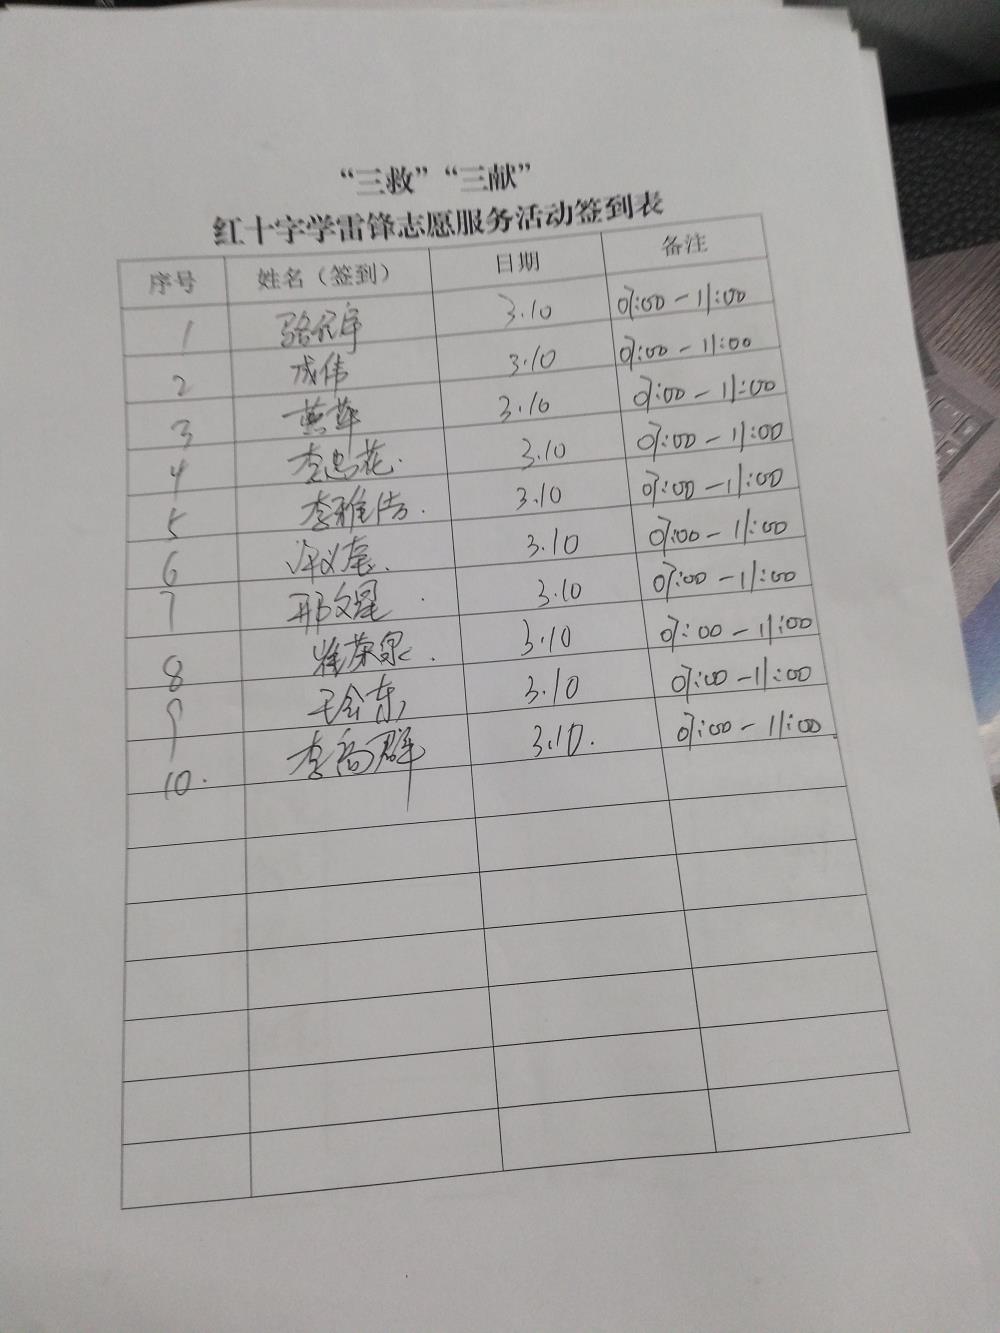 “三救”“三献”
红十字学雷锋志愿服务活动签到表
序号 姓名（签到） 日期 备注
1 3.10 07:00-11:00
2 成伟 3.10 07:00-11:00
3 3.10 07:00-11:00
4 李忠花. 3.10 07:00-11:00
5 李雅洁. 3.10 07:00-11:00
6 3.10 07:00-11:00
7 邢文星 3.10 07:00-11:00
8 崔荣泉. 3.10 07:00-11:00
9 王会东 3.10 07:00-11:00
10. 李尚群 3.10. 07:00-11:00.